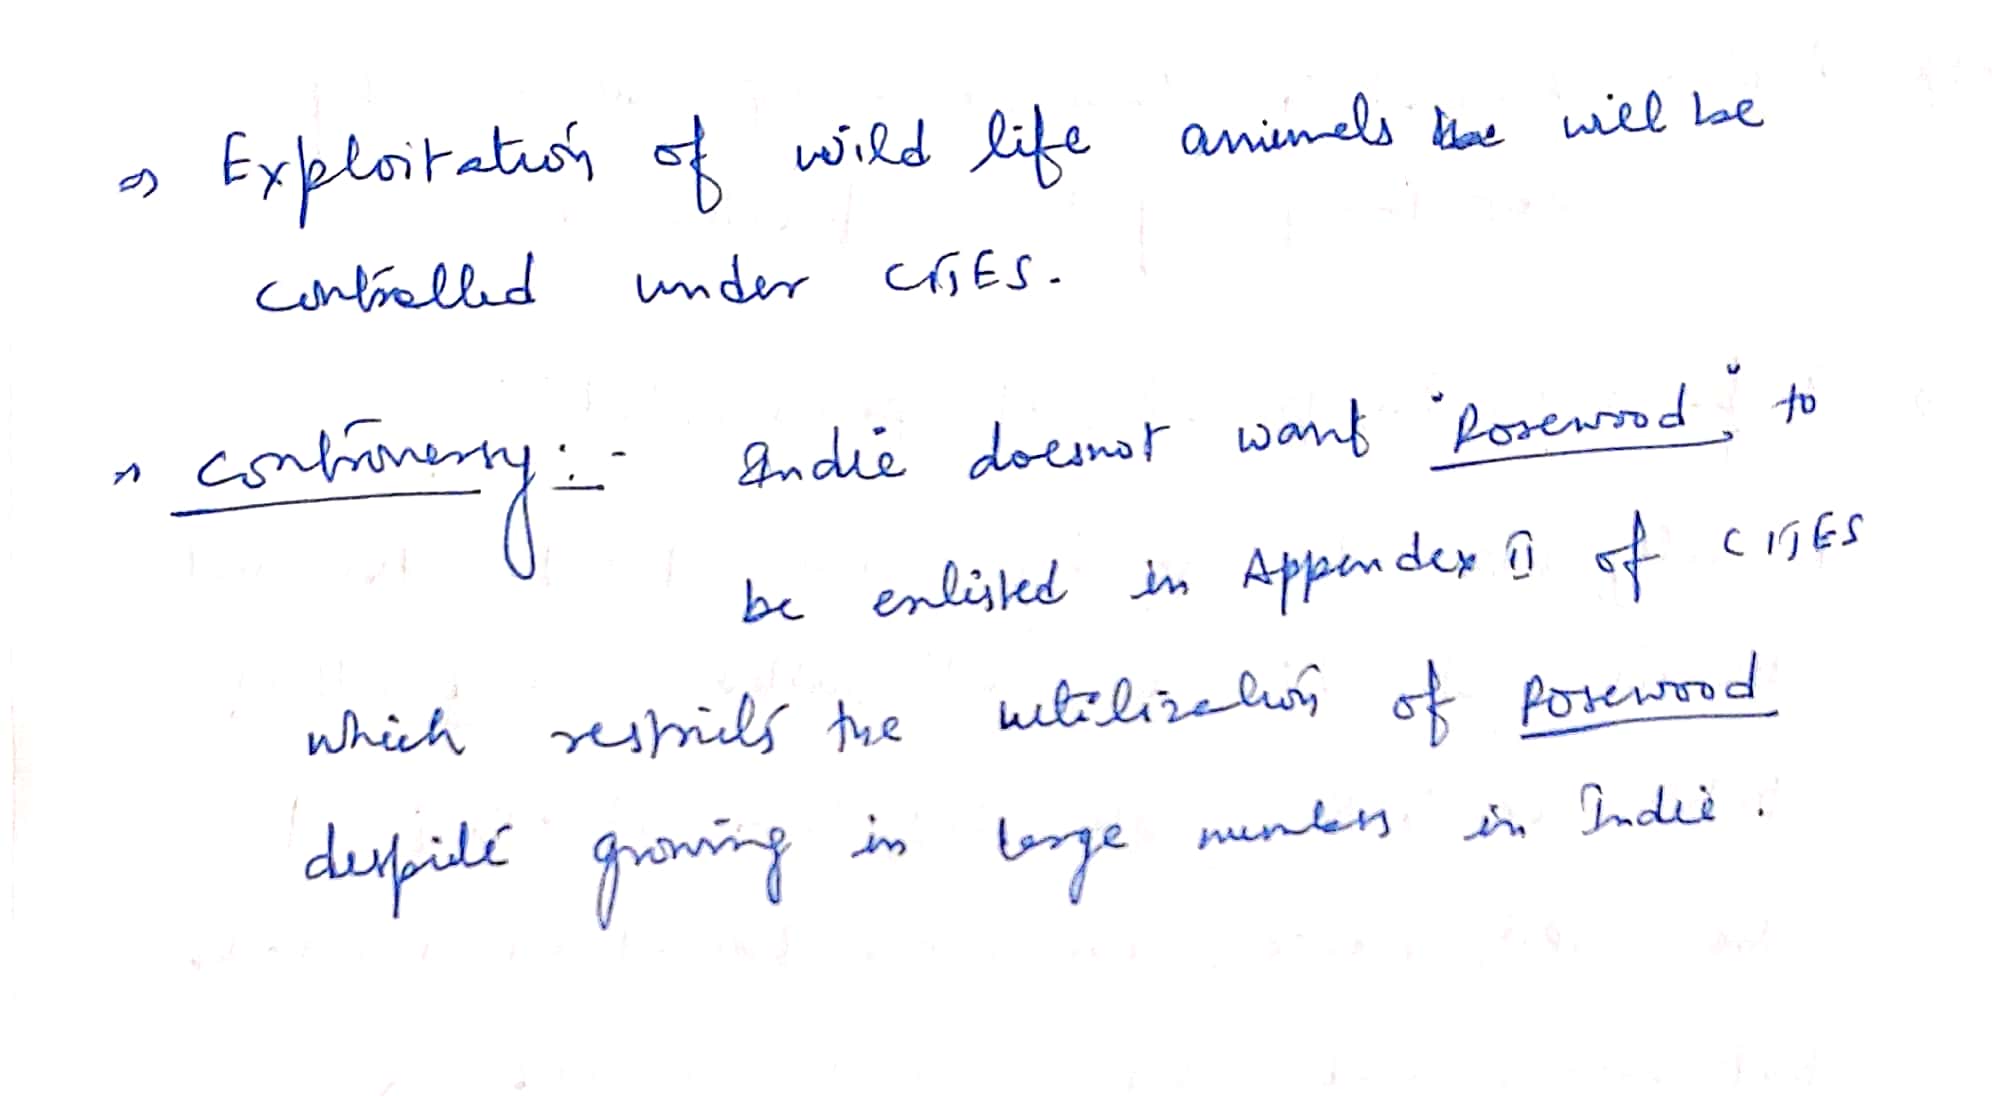 ⇒ Exploitation of wild life animals will be
controlled under CITES.
⇒ Controversy :- India doesnot want "Rosewood" to
be enlisted in Appendex II of CITES
which restricts the utilization of Rosewood
despite growing in large numbers in India.